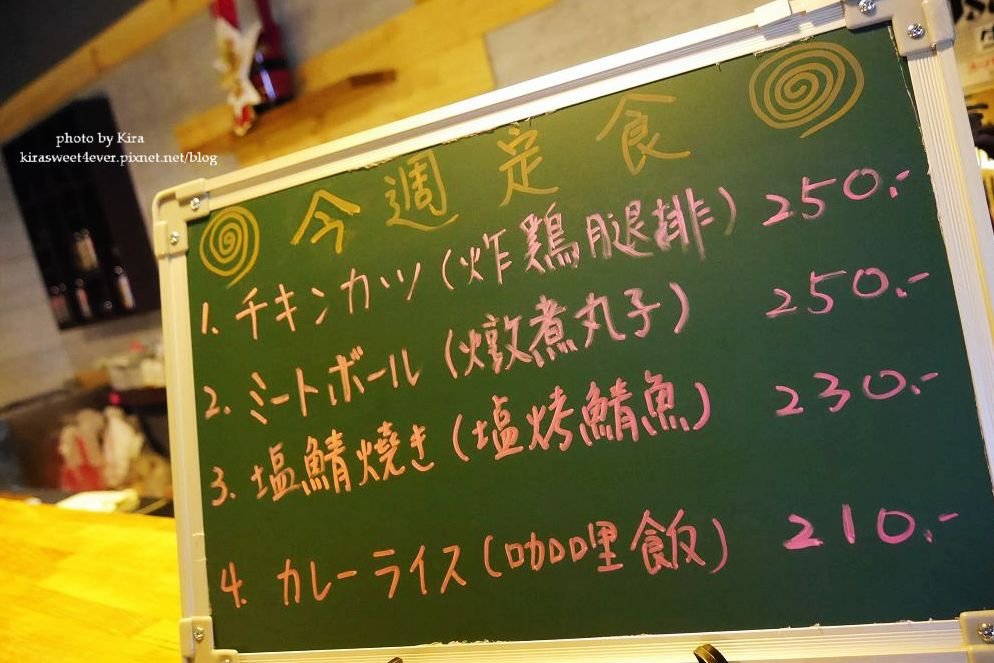 photo by Kira
kirasweet4ever.pixnet.net/blog
今週定食
1. チキンカツ(炸鶏腿排) 250.-
2. ミートボール(燉煮丸子) 250.-
3. 塩鯖燒き(塩烤鯖魚) 230.-
4. カレーライス(咖哩飯) 210.-